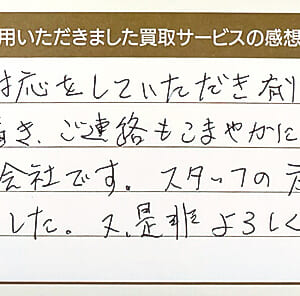 用いただきました買取サービスの感想
対応をしていただき有
き、ご連絡もこまやかに
会社です。スタッフの
した。又、是非よろしく